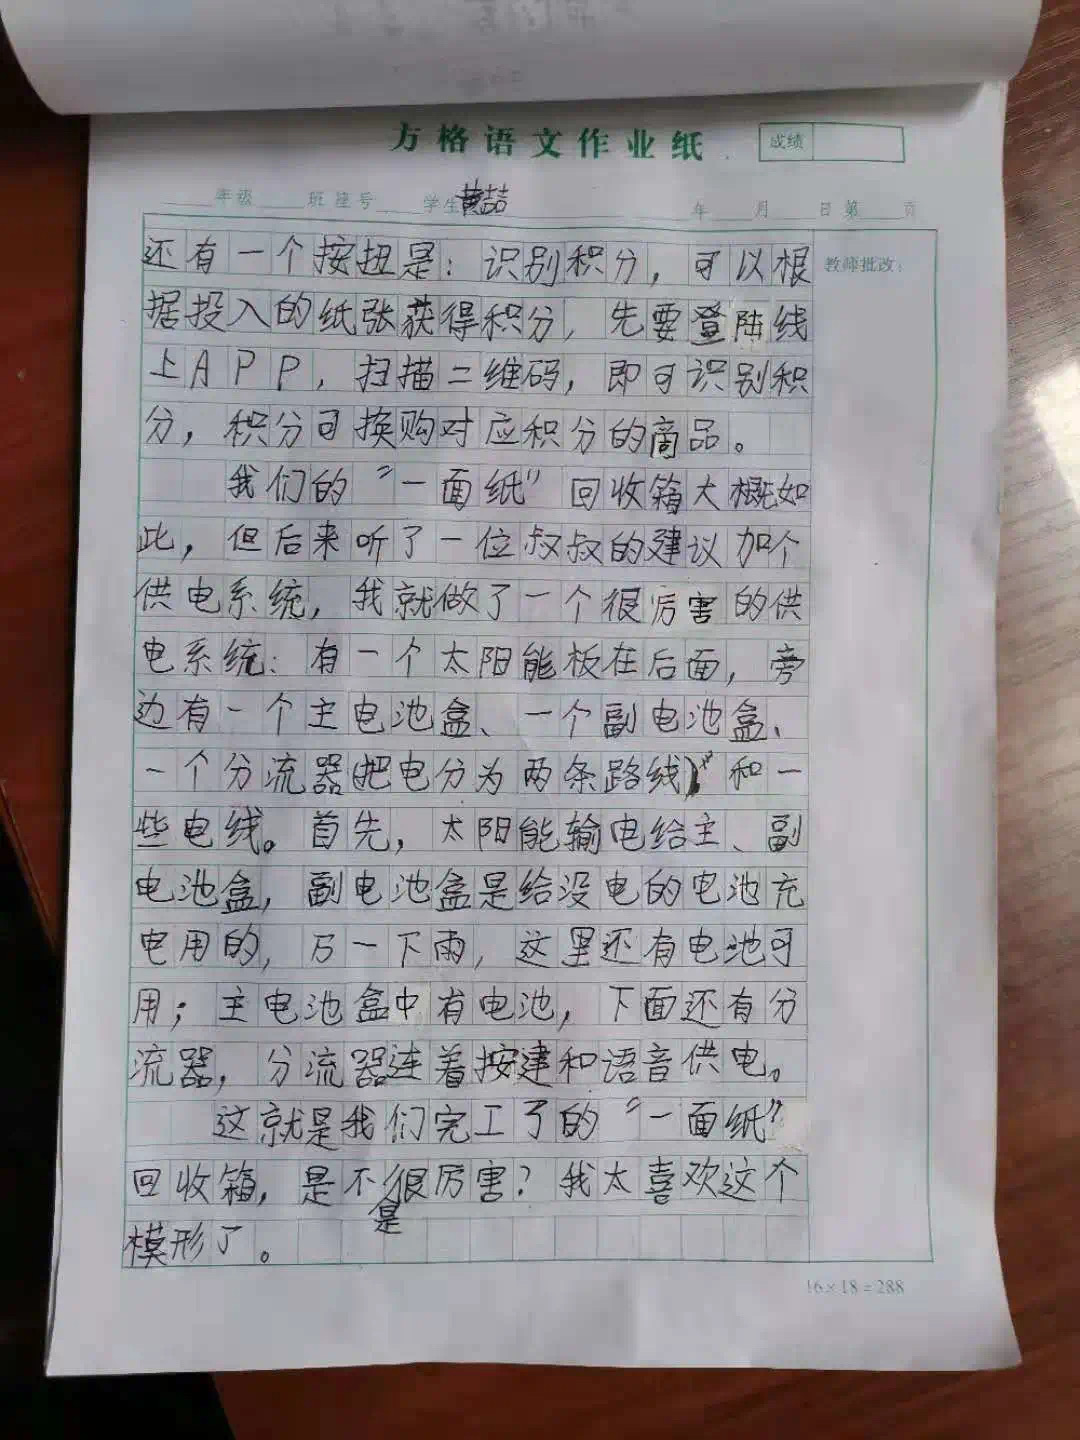 方格语文作业纸
成绩
年级 班 座号 学生 黄喆 年 月 日 第 页
教师批改：
还有一个按扭是：识别积分，可以根
据投入的纸张获得积分，先要登陆线
上APP，扫描二维码，即可识别积
分，积分可换购对应积分的商品。
我们的“一面纸”回收箱大概如
此，但后来听了一位叔叔的建议加个
供电系统，我就做了一个很厉害的供
电系统：有一个太阳能板在后面，旁
边有一个主电池盒、一个副电池盒、
一个分流器(把电分为两条路线)”和一
些电线。首先，太阳能输电给主、副
电池盒，副电池盒是给没电的电池充
电用的，万一下雨，这里还有电池可
用；主电池盒中有电池，下面还有分
流器，分流器连着按建和语音供电。
这就是我们完工了的“一面纸”
回收箱，是不是很厉害？我太喜欢这个
模形了。
16×18=288